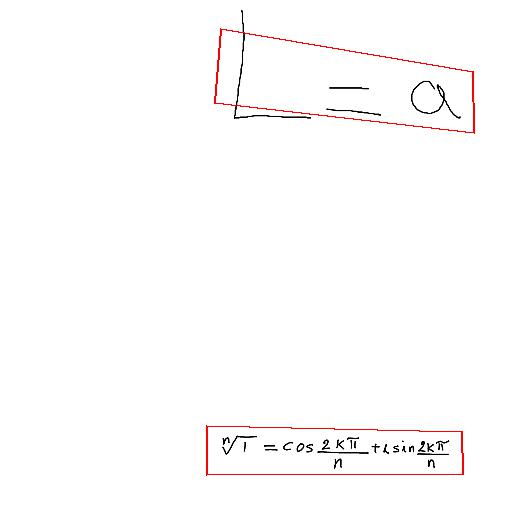 L = a
\sqrt[n]{1} = cos \frac{2kπ}{n} + i sin \frac{2kπ}{n}